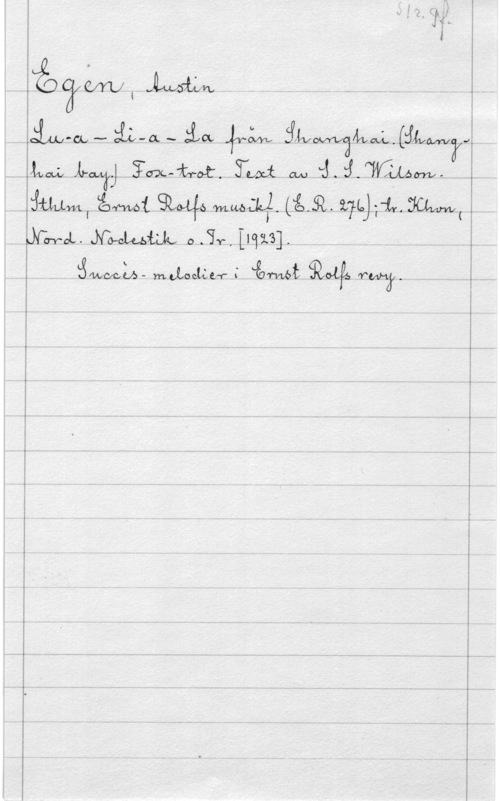 S12. 9f.
Egen, Austin
Lu-a-Li-a-La från Shanghai. (Shang-
hai bay.) Fox-trot. Text av S. S. Wilson.
Sthlm, Ernst Rolfs musikf. (E. R. 276); tr. Khvn,
Nord. Nodestik o. Tr. [1923].
Succès-melodier i Ernst Rolfs revy.